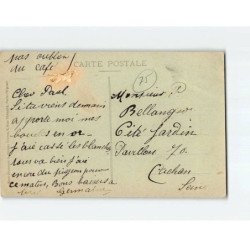 pas oublier
du café
CARTE POSTALE
Cher Paul
Si tu viens demain
apporte moi mes
boucles en or
j'ai cassé les blanches
tout va bien j'ai
du pigeon pour
ce matin, Bons baisers à
Monsieur P
Bellanger
Cité Jardin
Pavillons 70
Cachan
Seine